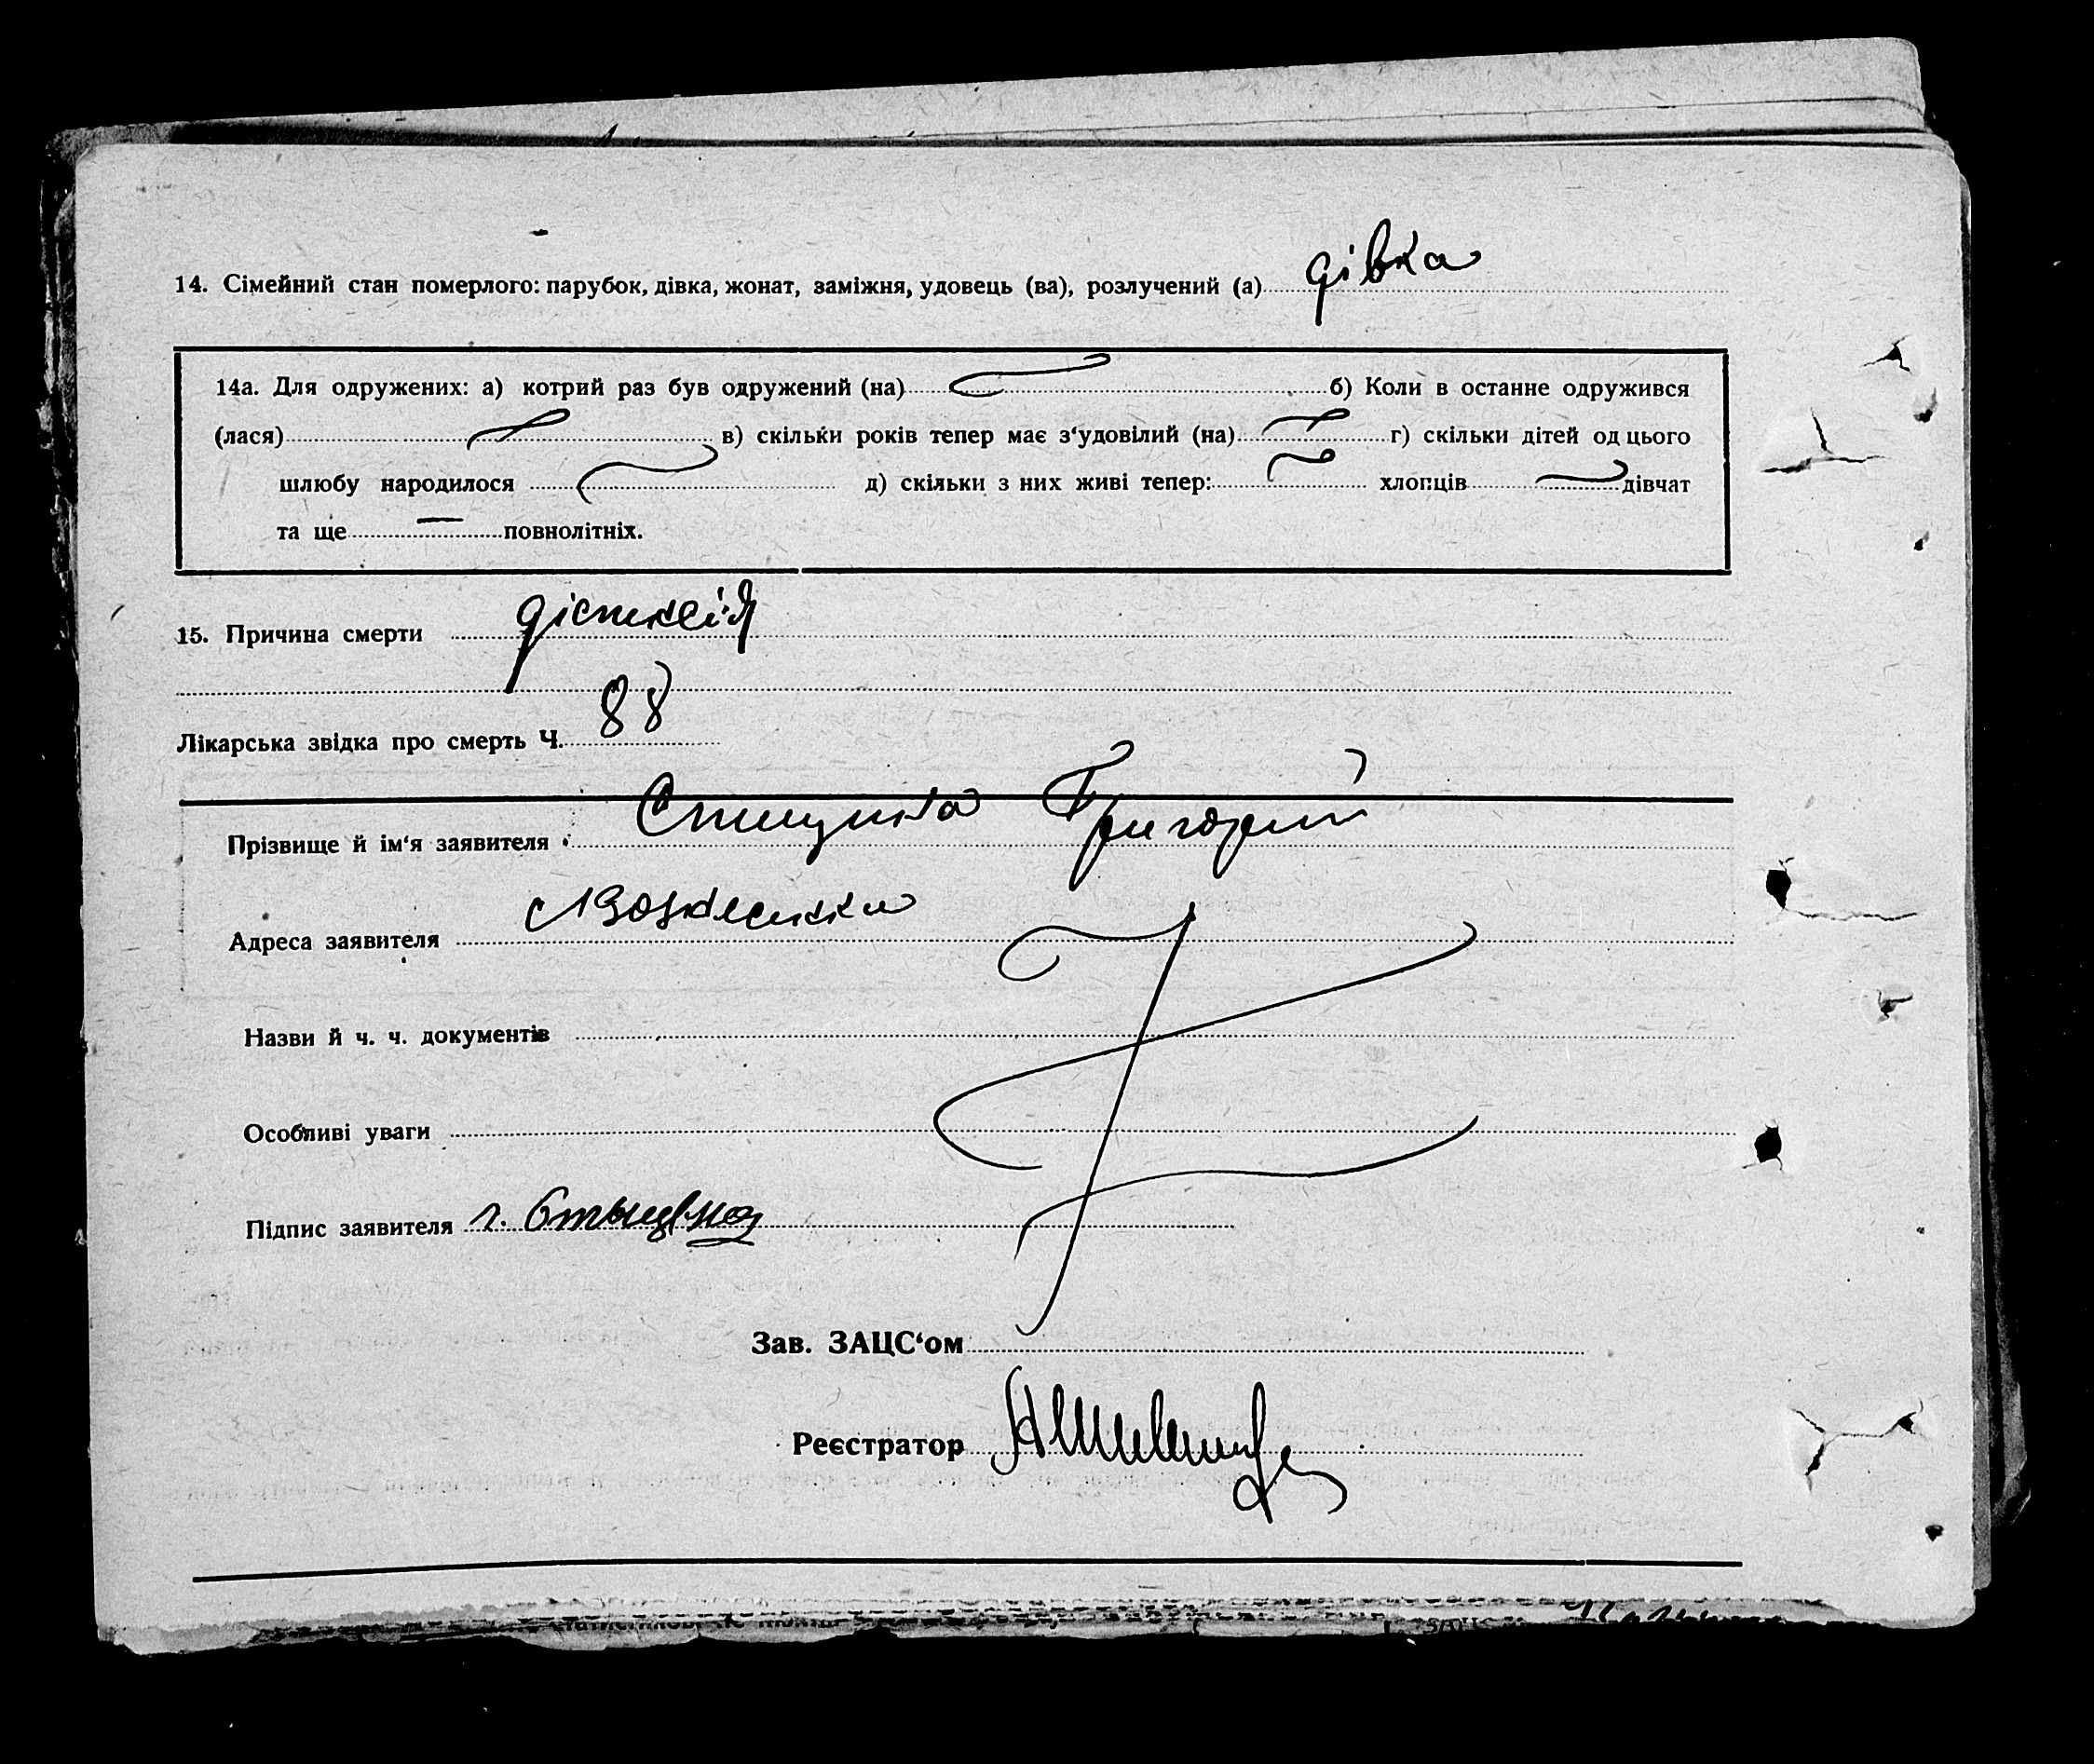 14. Сімейний стан померлого: парубок, дівка, жонат, заміжня, удовець (ва), розлучений (а) дівка
14а. Для одружених: а) котрий раз був одружений (на) б) Коли в останнє одружився
(лася) в) скільки років тепер має з‘удовілий (на) г) скільки дітей од цього
шлюбу народилося д) скільки з них живі тепер: хлопців дівчат
та ще — повнолітніх.
15. Причина смерти
Лікарська звідка про смерть Ч. 88
Прізвище й ім‘я заявителя Григорий
Адреса заявителя
Назви й ч. ч. документів
Особливі уваги
Підпис заявителя Г.
Зав. ЗАЦС‘ом
Реєстратор